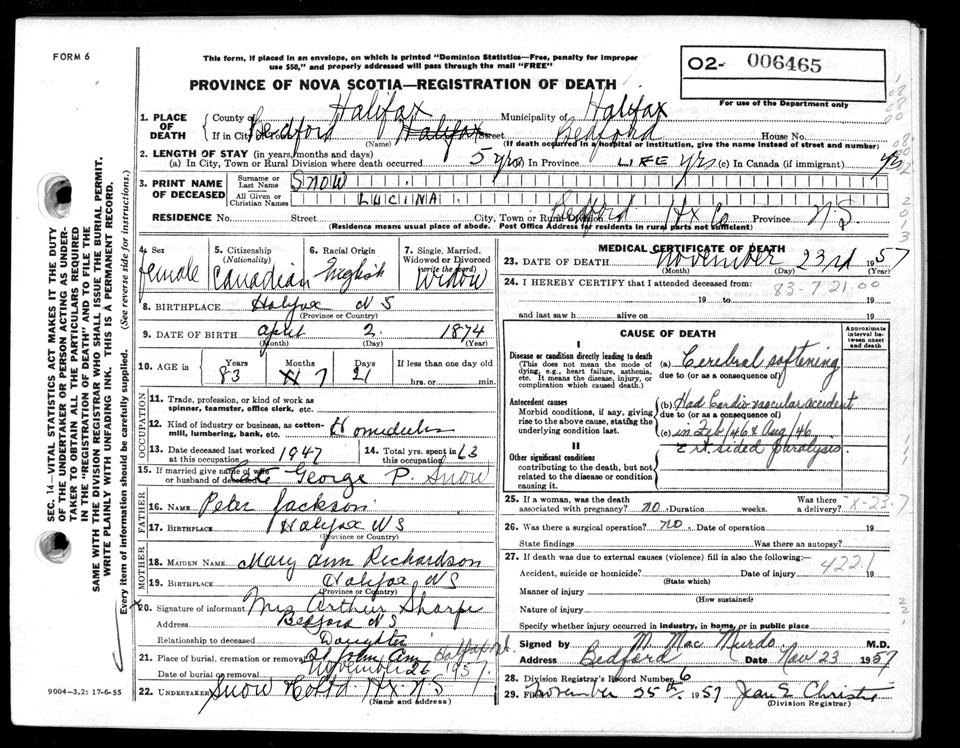 FORM 6
This form, if placed in an envelope, on which is printed "Dominion Statistics—Free, penalty for improper
use $50," and properly addressed will pass through the mail "FREE"
O2- 006465
PROVINCE OF NOVA SCOTIA—REGISTRATION OF DEATH
For use of the Department only
1. PLACE OF DEATH
County of Halifax Municipality of Halifax
If in City Bedford Halifax Street Bedford House No.
(Name) (If death occurred in a hospital or institution, give the name instead of street and number)
2. LENGTH OF STAY (in years, months and days)
(a) In City, Town or Rural Division where death occurred 5 yrs In Province LIFE yrs (c) In Canada (if immigrant) yrs
3. PRINT NAME OF DECEASED
Surname or Last Name SNOW
All Given or Christian Names LUCINA
RESIDENCE No. Street City, Town or Rural Division Bedford Hx Co Province N.S.
(Residence means usual place of abode. Post Office Address for residents in rural parts not sufficient)
4. Sex female
5. Citizenship (Nationality) Canadian
6. Racial Origin English
7. Single, Married, Widowed or Divorced (write the word) Widow
8. BIRTHPLACE Halifax N S
(Province or Country)
9. DATE OF BIRTH April 2 1874
(Month) (Day) (Year)
10. AGE in Years 83 Months 7 Days 21 If less than one day old hrs. or min.
OCCUPATION
11. Trade, profession, or kind of work as spinner, teamster, office clerk, etc.
12. Kind of industry or business, as cotton-mill, lumbering, bank, etc.
13. Date deceased last worked at this occupation 1947
14. Total yrs. spent in this occupation 63
15. If married give name of wife or husband of deceased George P. Snow
FATHER
16. Name Peter Jackson
17. Birthplace Halifax N S
(Province or Country)
MOTHER
18. MAIDEN NAME Mary Ann Richardson
19. Birthplace Halifax NS
(Province or Country)
20. Signature of informant Mrs Arthur Sharpe
Address Bedford N S
Relationship to deceased Daughter
21. Place of burial, cremation or removal St John Halifax
Date of burial or removal November 26 1957
22. UNDERTAKER Snow & Co Ltd. Hx. N.S
(Name and address)
9004—3.2: 17-6-55
MEDICAL CERTIFICATE OF DEATH
23. DATE OF DEATH November 23rd 1957
(Month) (Day) (Year)
24. I HEREBY CERTIFY that I attended deceased from
83-7-21.00
19 to 19
and last saw h alive on 19
CAUSE OF DEATH
Approximate interval between onset and death
I
Disease or condition directly leading to death
(This does not mean the mode of dying, e.g., heart failure, asthenia, etc. It means the disease, injury, or complication which caused death.)
(a) Cerebral softening
due to (or as a consequence of)
Antecedent causes
Morbid conditions, if any, giving rise to the above cause, stating the underlying condition last.
(b) Had Cardio-vascular accident
due to (or as a consequence of)
(c) in Feb/46 & Aug/46
sided paralysis
II
Other significant conditions
contributing to the death, but not related to the disease or condition causing it.
25. If a woman, was the death associated with pregnancy? no Duration weeks. Was there a delivery?
26. Was there a surgical operation? no. Date of operation 19
State findings Was there an autopsy?
27. If death was due to external causes (violence) fill in also the following:—
422.1
Accident, suicide or homicide? Date of injury 19
(State which)
Manner of injury
(How sustained)
Nature of injury
Specify whether injury occurred in industry, in home, or in public place
Signed by M. Mac Murdo M.D.
Address Bedford Date Nov 23 1957
28. Division Registrar's Record Number 6
29. November 25th 1957 Jean E Christie
(Division Registrar)
SEC. 14—VITAL STATISTICS ACT MAKES IT THE DUTY
OF THE UNDERTAKER OR PERSON ACTING AS UNDER-
TAKER TO OBTAIN ALL THE PARTICULARS REQUIRED
IN THE "REGISTRATION OF DEATH" AND TO FILE THE
SAME WITH THE DIVISION REGISTRAR WHO SHALL ISSUE THE BURIAL PERMIT.
WRITE PLAINLY WITH UNFADING INK. THIS IS A PERMANENT RECORD.
Every item of information should be carefully supplied. (See reverse side for instructions.)